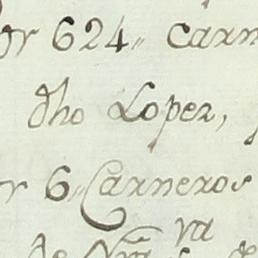 or 624,, carn
dho Loper,
r 6,, Carneros
va